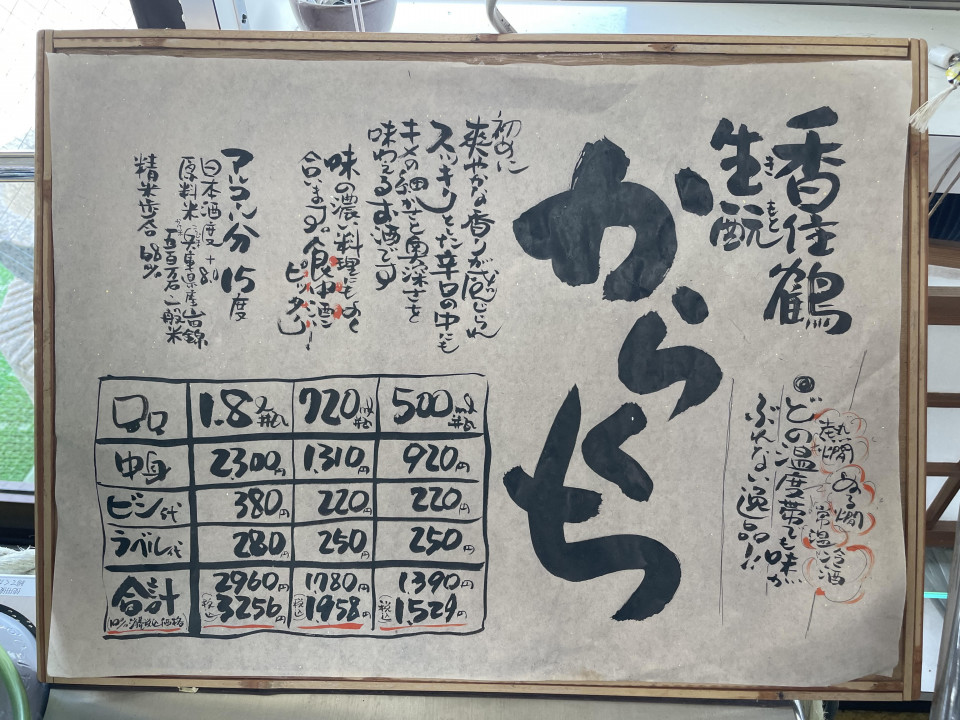 香住鶴
生酛
きもと
からくち
熱燗 ぬる燗
常温 冷酒
どの温度帯でも味が
ぶれない逸品!!
初めに
爽やかな香りが感じられ
スッキリとした辛口の中にも
キメの細かさと奥深さを
味わえるお酒です
味の濃い料理にもよく
合います。食中酒に
ピッタシー!
アルコール分 15度
日本酒度 +8.0
原料米 兵庫県産山田錦
五百万石・一般米
精米歩合 68%
1.8ℓ瓶 720ml瓶 500ml瓶
中身 2300円 1.310円 920円
ビン代 380円 220円 220円
ラベル代 280円 250円 250円
合計 2960円 1.780円 1.390円
10%消費税込価格 (税込)3256円 (税込)1.958円 (税込)1.529円